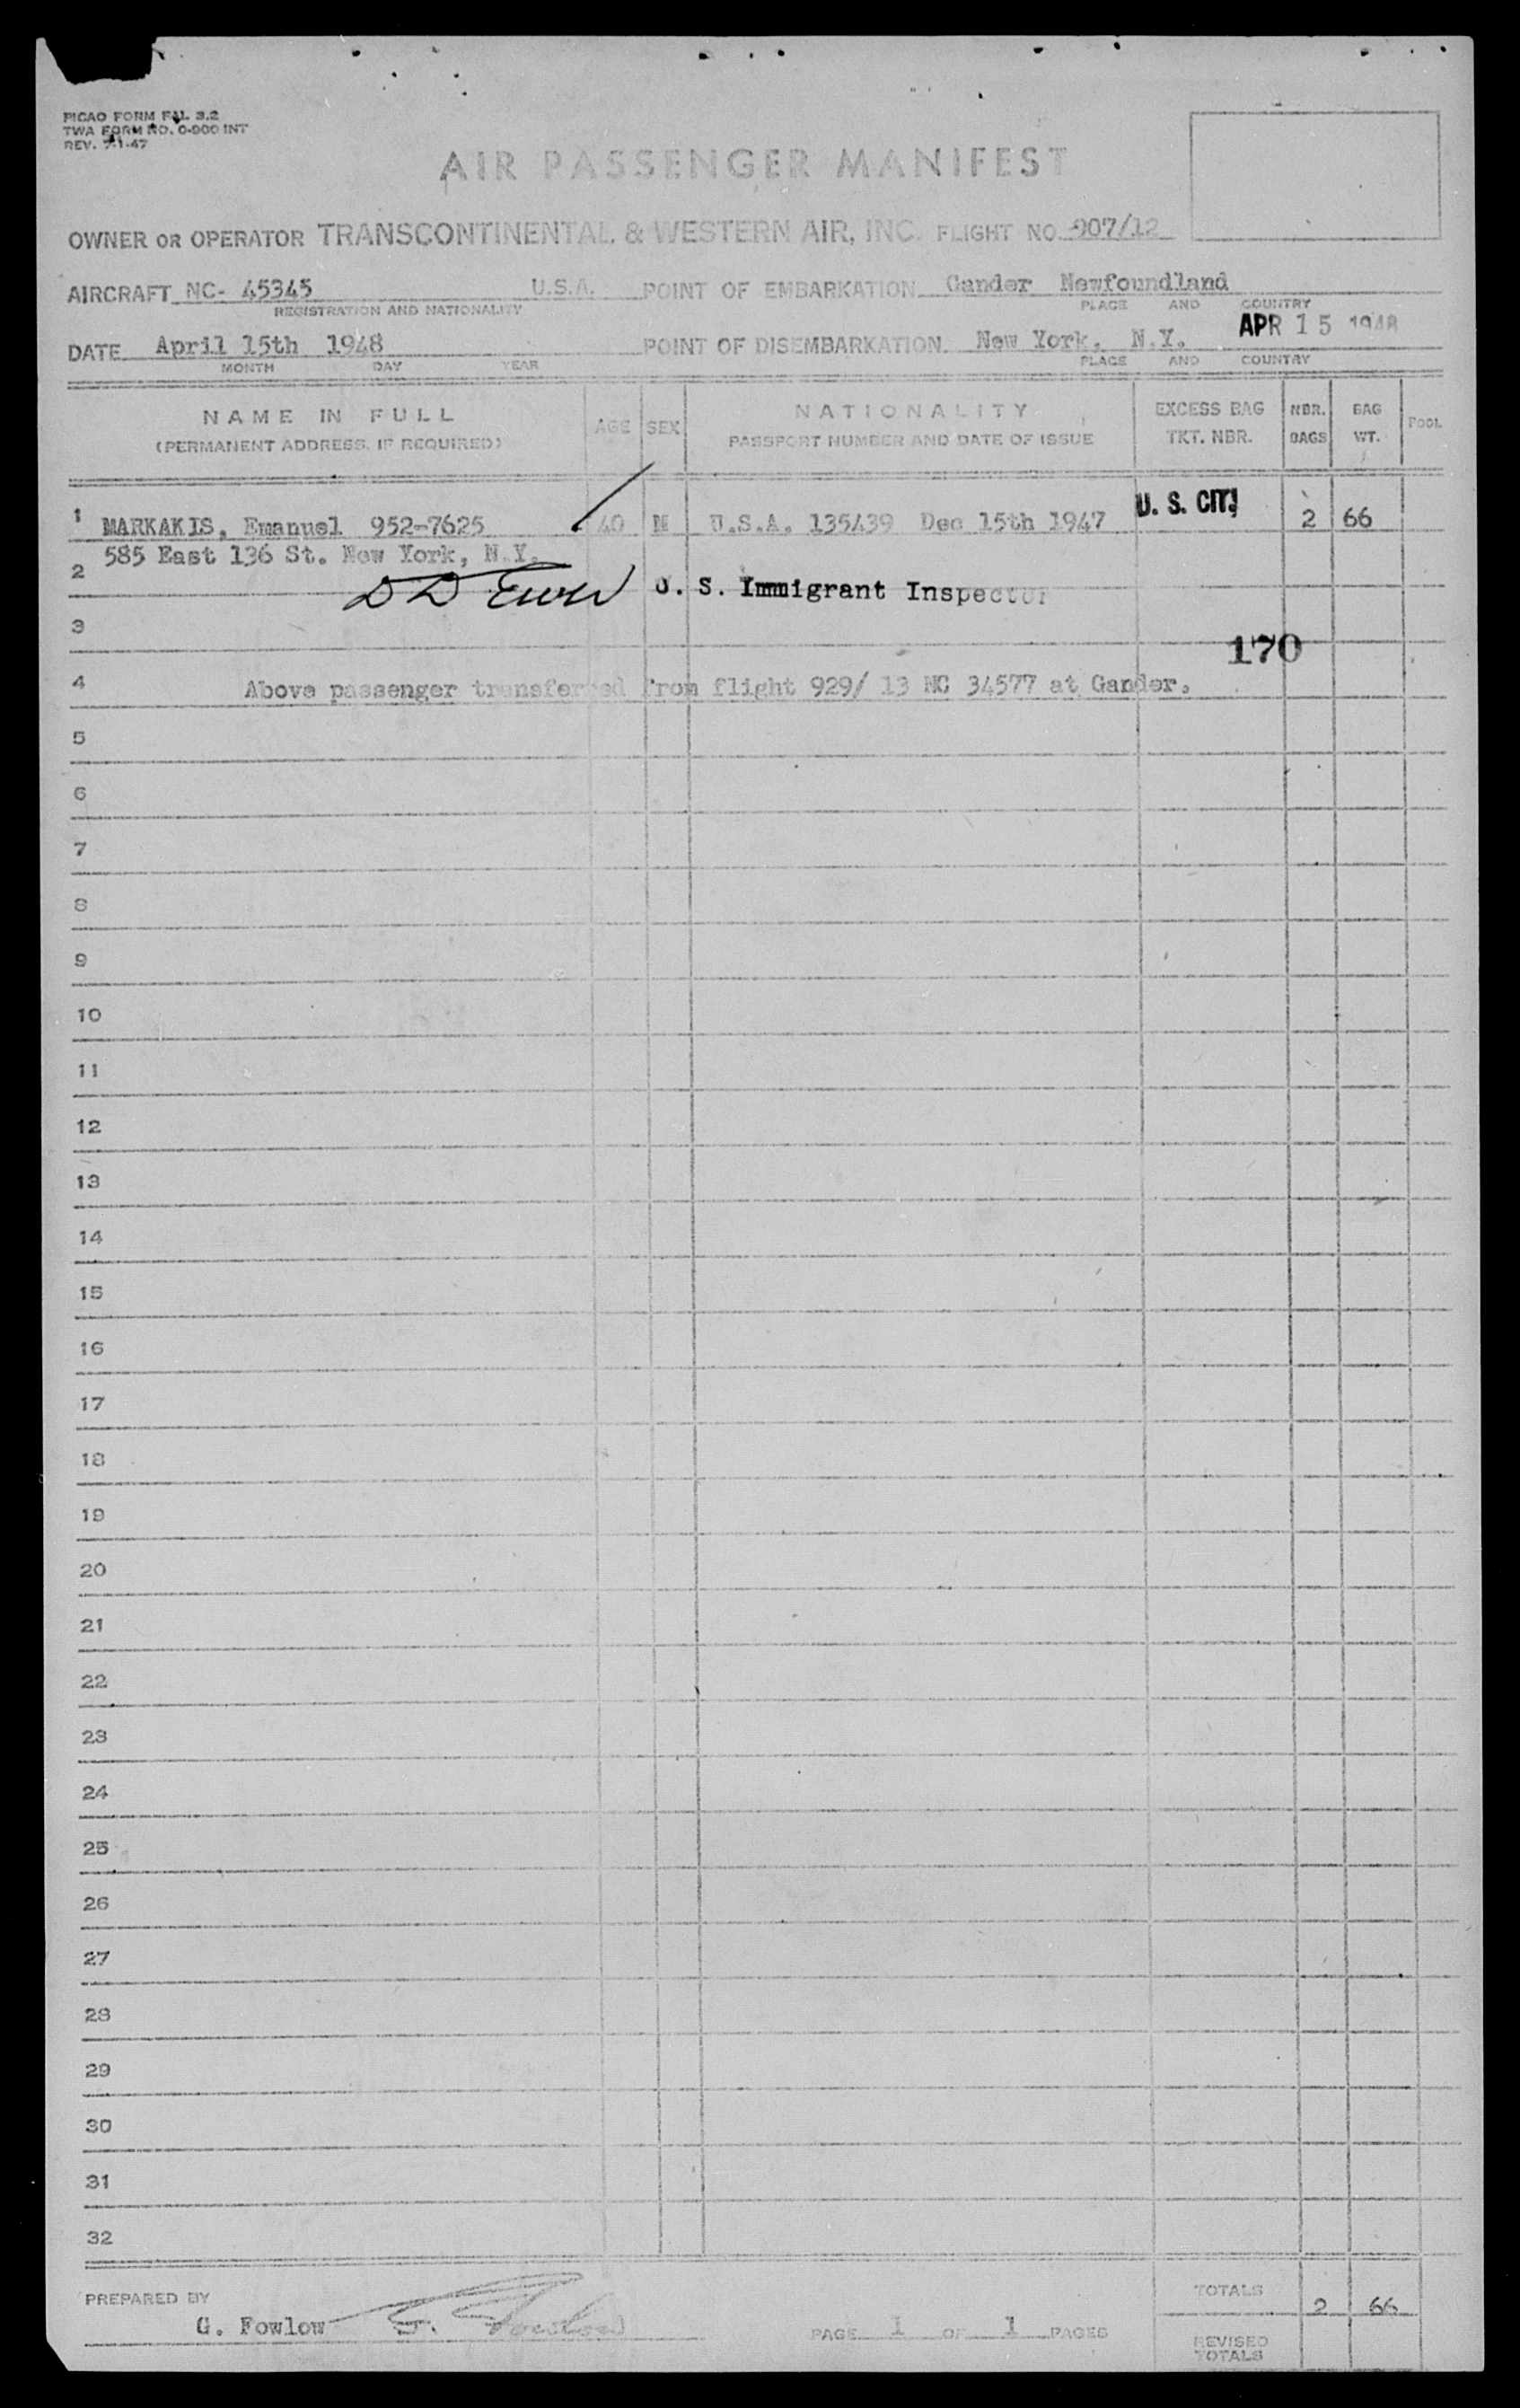 PICAO FORM FAL 3.2
TWA FORM NO. 0-900 INT
REV. 7-1-47
AIR PASSENGER MANIFEST
OWNER OR OPERATOR TRANSCONTINENTAL & WESTERN AIR, INC. FLIGHT NO. 907/12
AIRCRAFT NC- 45345 U.S.A. POINT OF EMBARKATION Gander Newfoundland
REGISTRATION AND NATIONALITY PLACE AND COUNTRY
APR 15 1948
DATE April 15th 1948 POINT OF DISEMBARKATION New York, N.Y.
MONTH DAY YEAR PLACE AND COUNTRY
NAME IN FULL AGE SEX NATIONALITY EXCESS BAG NBR. BAG POOL
(PERMANENT ADDRESS, IF REQUIRED) PASSPORT NUMBER AND DATE OF ISSUE TKT. NBR. BAGS WT.
1 MARKAKIS, Emanuel 952-7625 40 M U.S.A. 135439 Dec 15th 1947 U. S. CIT. 2 66
585 East 136 St. New York, N.Y.
2 U. S. Immigrant Inspector
3
170
4 Above passenger transferred from flight 929/ 13 NC 34577 at Gander.
5
6
7
8
9
10
11
12
13
14
15
16
17
18
19
20
21
22
23
24
25
26
27
28
29
30
31
32
PREPARED BY TOTALS 2 66
G. Fowlow G. Fowlow PAGE 1 OF 1 PAGES
REVISED
TOTALS